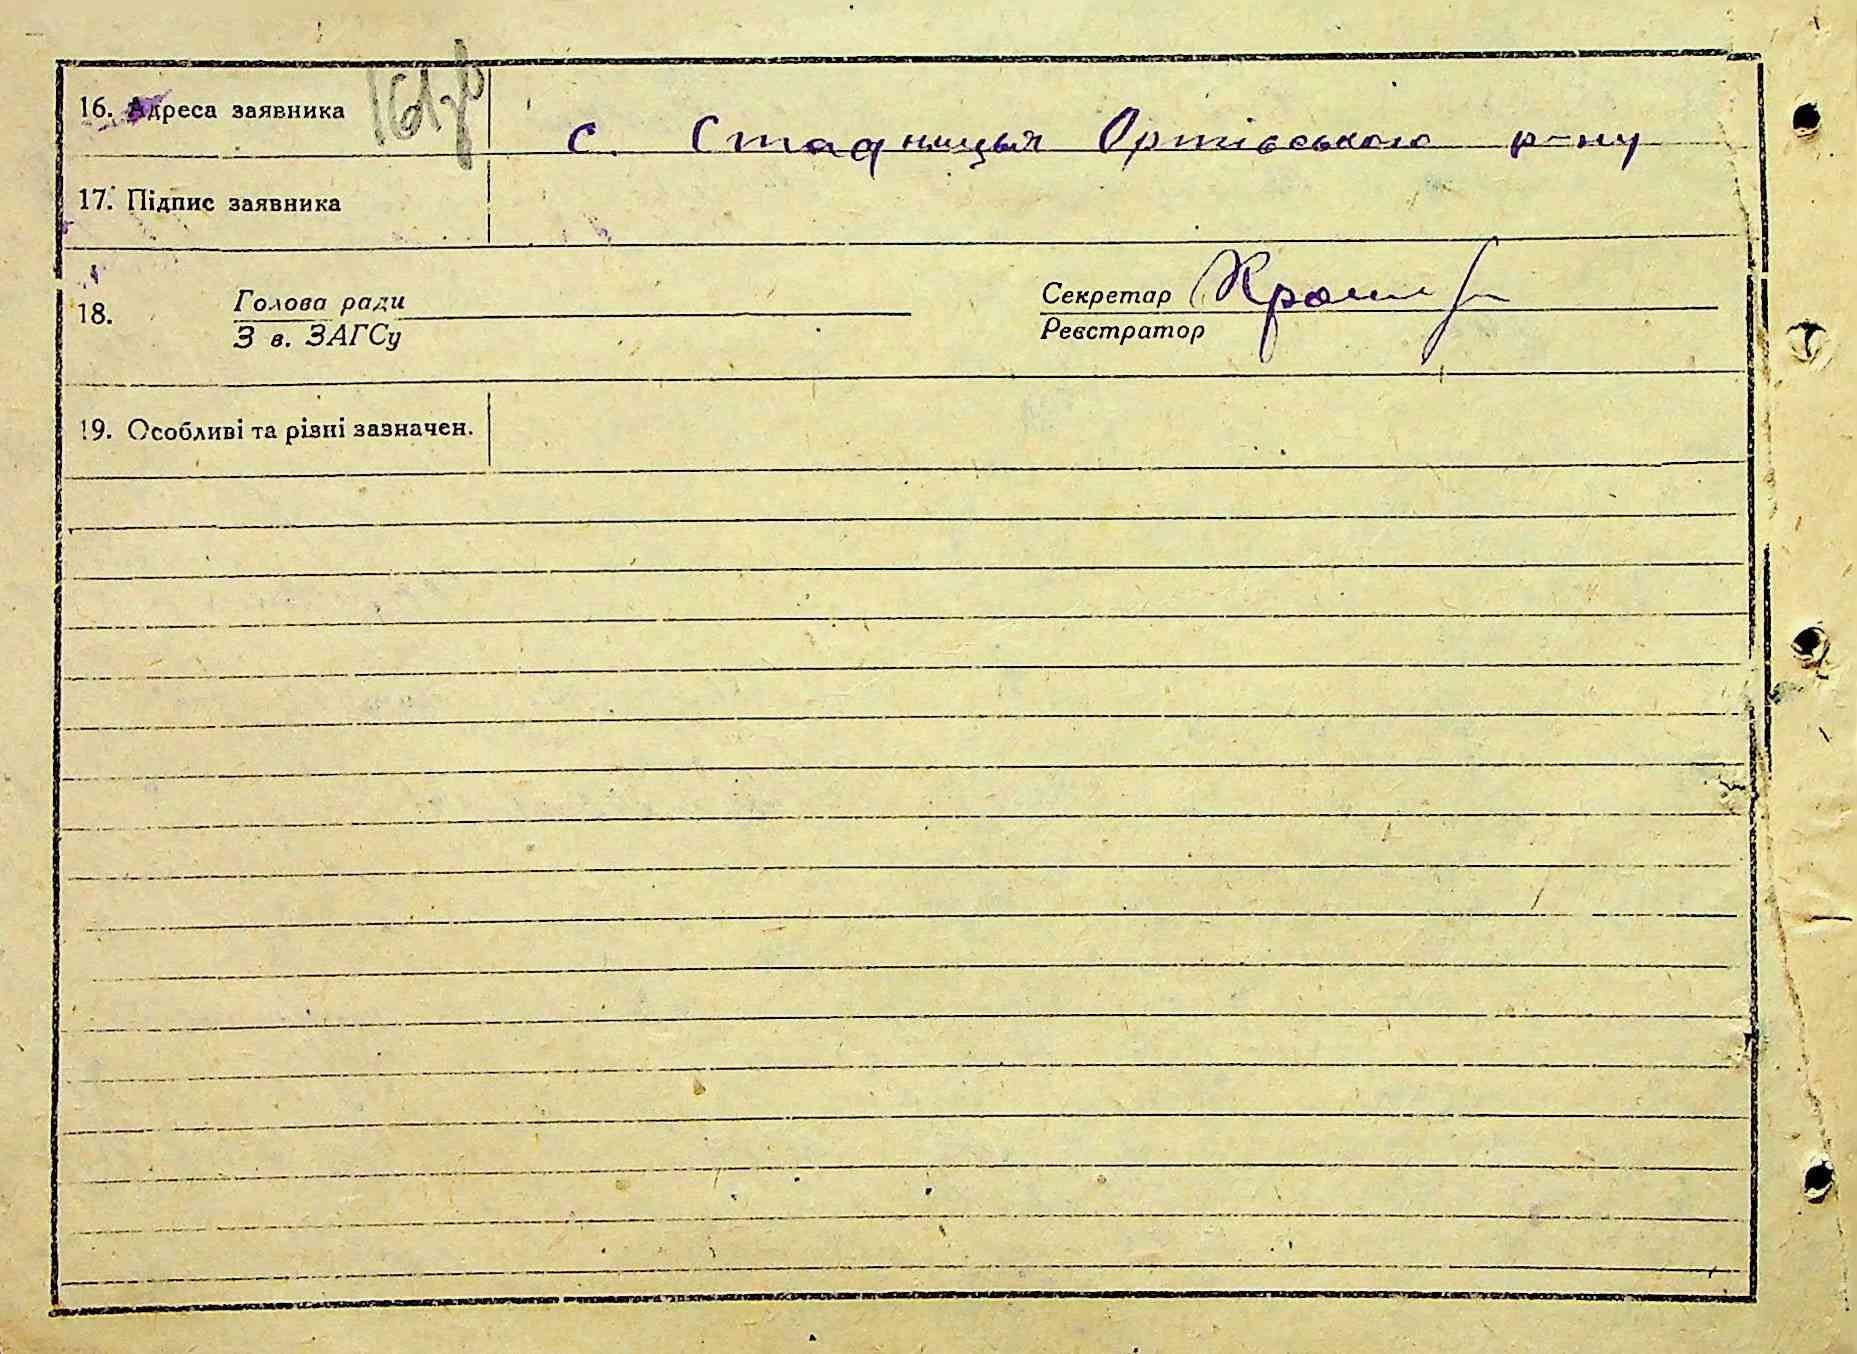 16. Адреса заявника с. Стадницья Оратівського р-ну
17. Підпис заявника
18. Голова ради Секретар
З в. ЗАГСу Реєстратор
19. Особливі та різні зазначен.